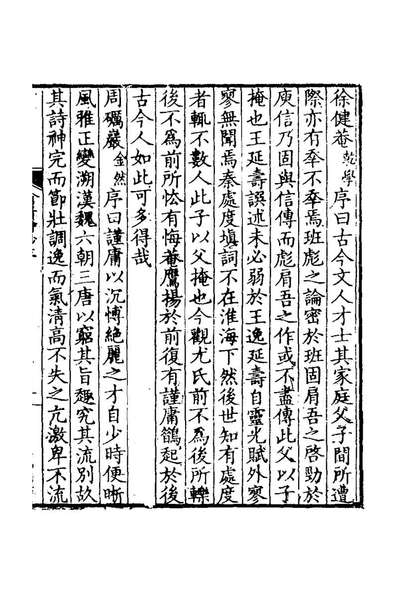 徐健菴乾學序曰古今文人才士其家庭父子間所遭
際亦有幸不幸焉班彪之論密於班固肩吾之啓勁於
庾信乃固與信傳而彪肩吾之作或不盡傳此父以子
掩也王延壽誤述未必弱於王逸延壽自靈光賦外寥
寥無聞焉秦處度塡詞不在淮海下然後世知有處度
者輒不數人此子以父掩也今觀尤氏前不爲後所轢
後不爲前所恡有悔菴鷹揚於前復有謹庸鶴起於後
古今人如此可多得哉
周礪巖金然序曰謹庸以沉博絶麗之才自少時便晰
風雅正變溯漢魏六朝三唐以窮其旨趣究其流別故
其詩神完而節壯調逸而氣清高不失之亢激卑不流